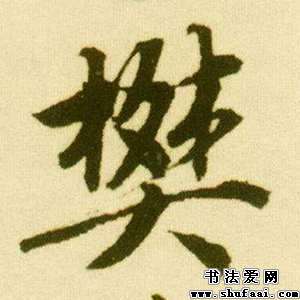 樊
书法爱网
www.shufaai.com